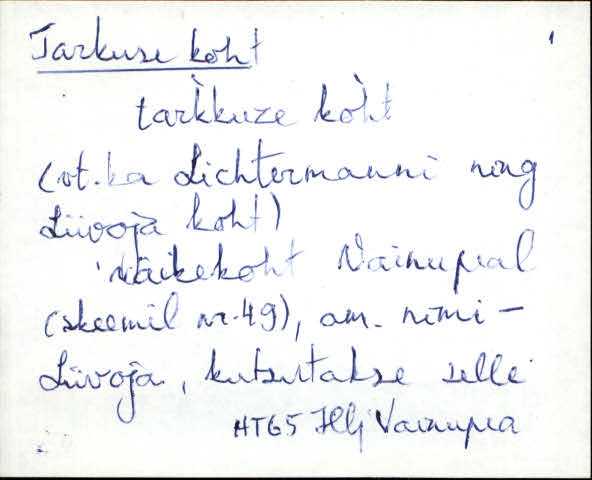 Tarkuse koht 1
tark̀kuze kòht
(vt. ka Lichtermanni ning
Liivoja koht)
väikekoht Vainupeal
(skeemil nr. 49), am. nimi –
Liivoja, kutsutakse selle
HT65 Hlj Vainupea